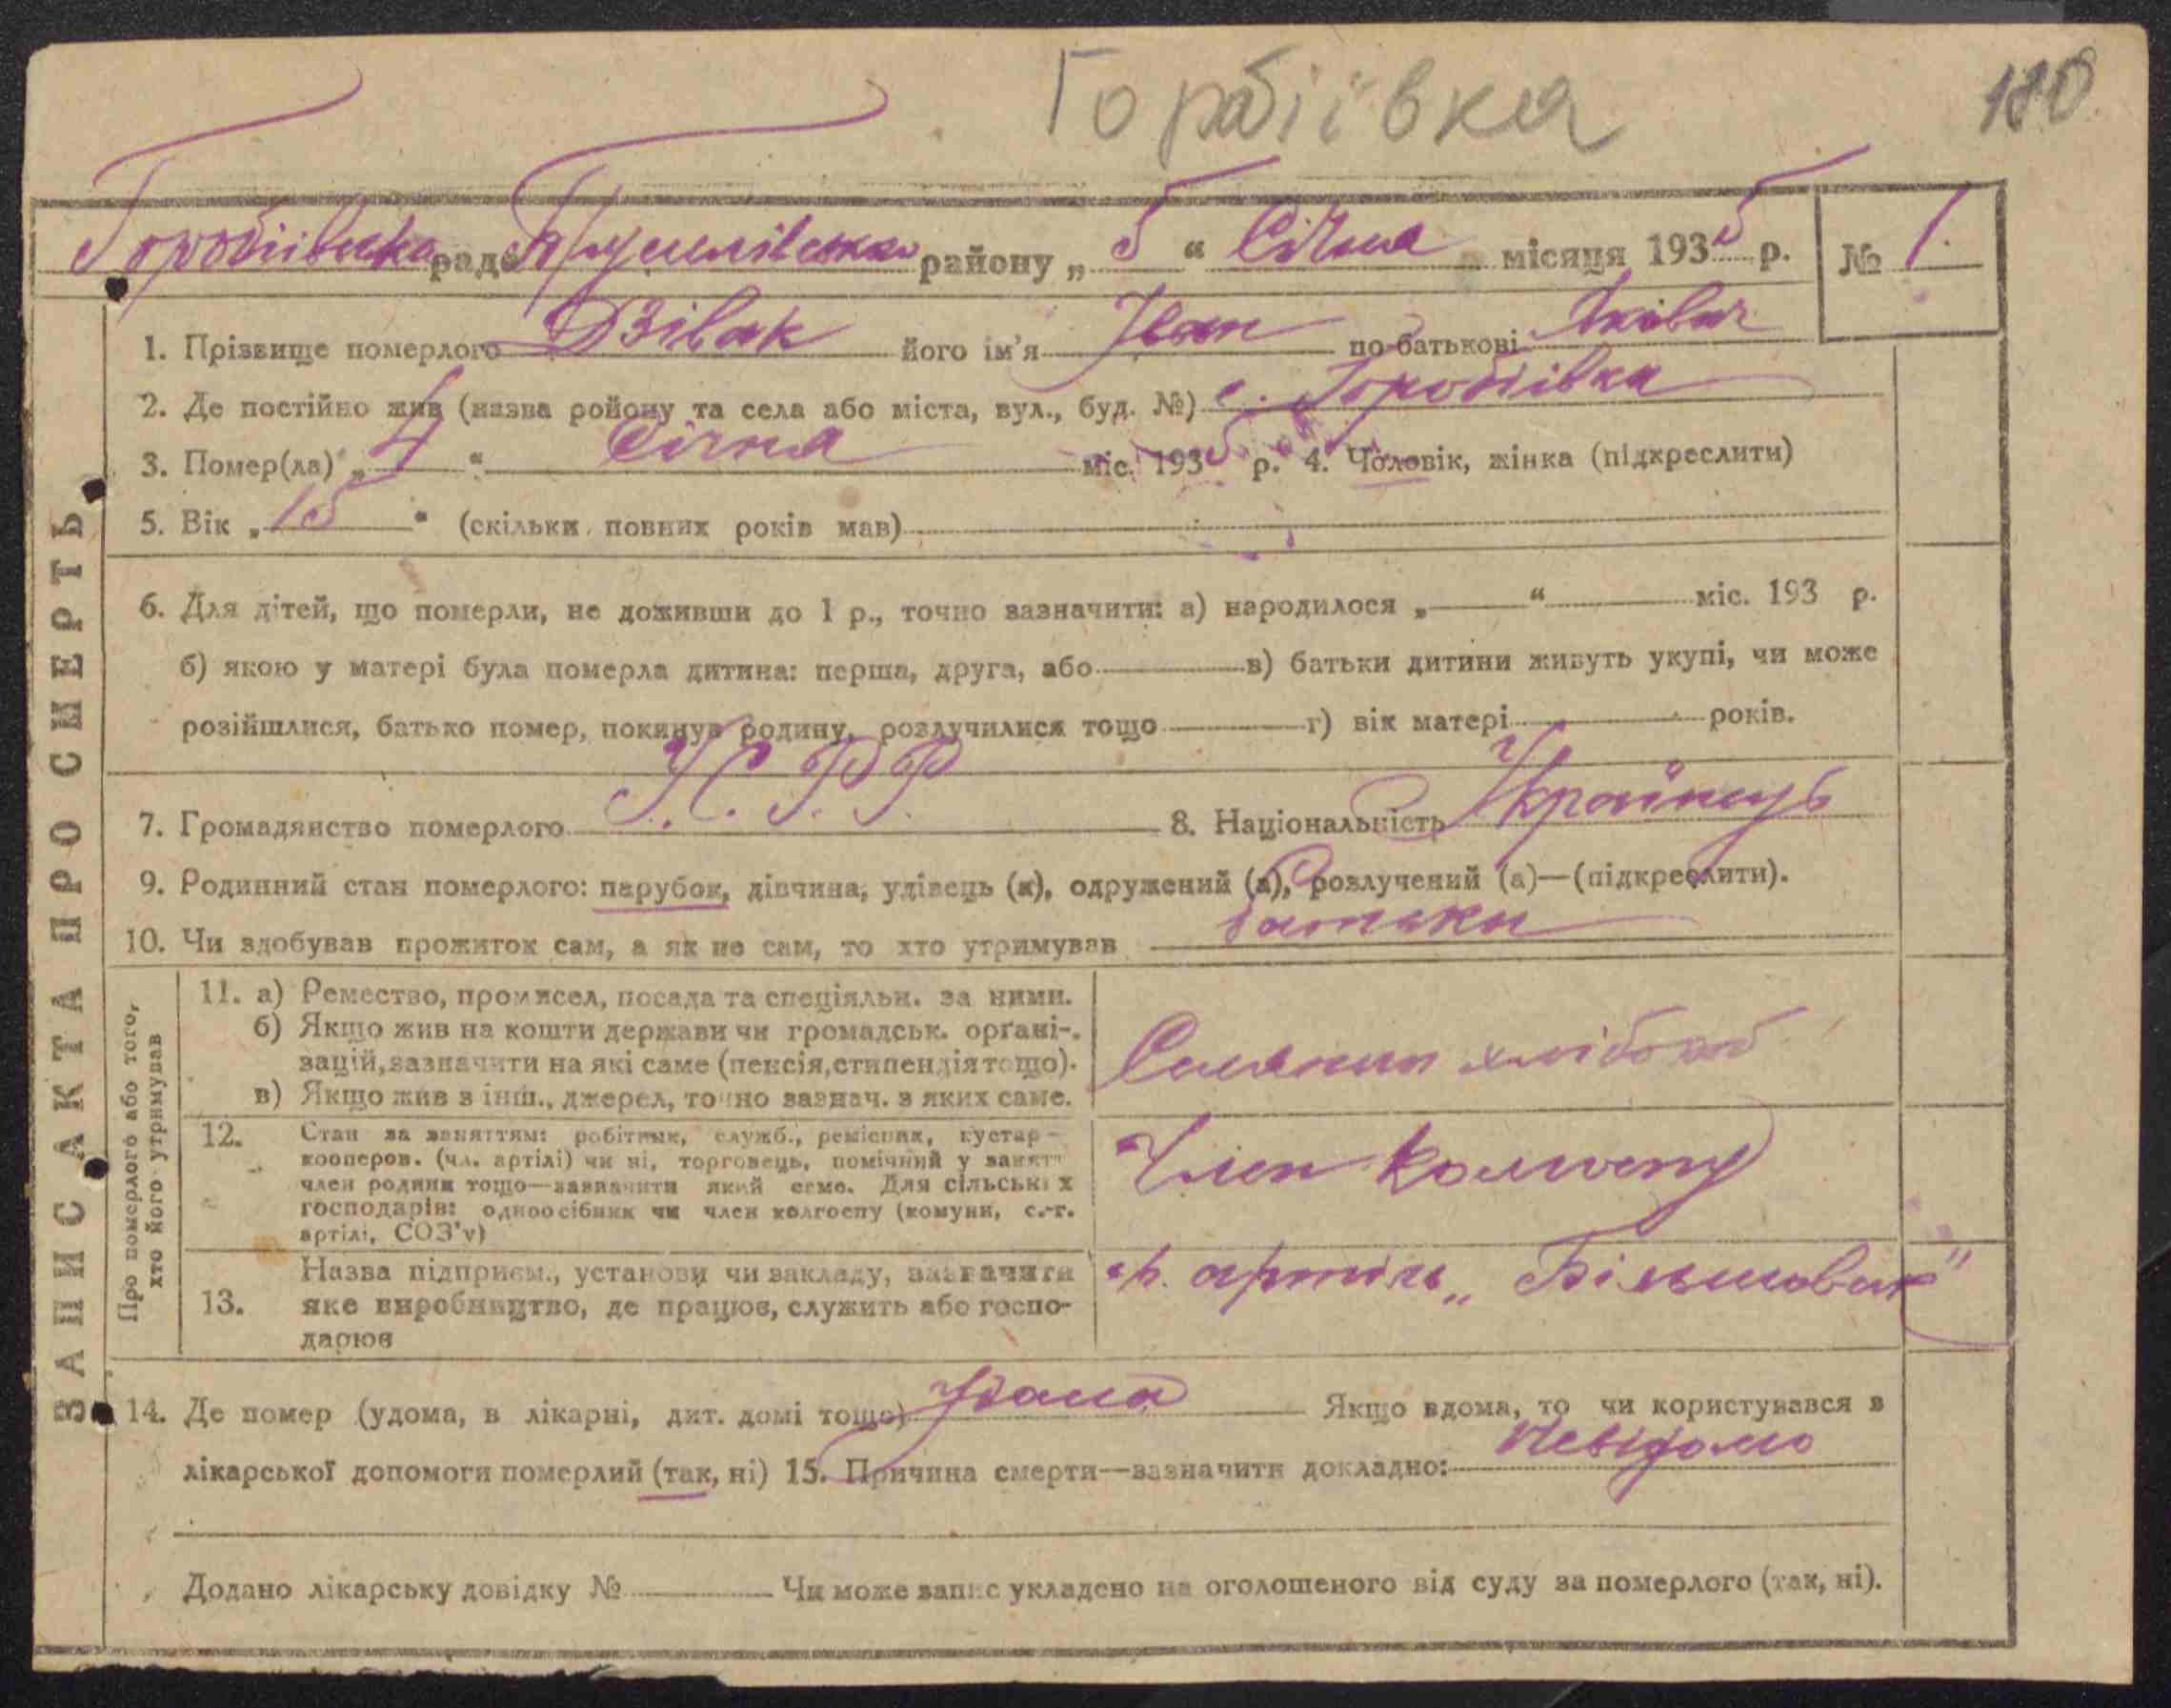 Горбіївка
180
Горобіївська рада району „ 5 “ Січня місяця 1935 р. № 1.
1. Прізвище померлого Дзівак його ім'я Іван по-батькові Яківич
2. Де постійно жив (назва ройону та села або міста, вул., буд. №) с. Горобіївка
3. Помер(ла) „ 4 “ Січня міс. 1935 р. 4. Чоловік, жінка (підкреслити)
5. Вік „ 15 “ (скільки повних років мав)
6. Для дітей, що померли, не доживши до 1 р., точно зазначити: а) народилося „ “ міс. 193 р.
б) якою у матері була померла дитина: перша, друга, або в) батьки дитини живуть укупі, чи може
розійшлися, батько помер, покинув родину, розлучилися тощо г) вік матері років.
7. Громадянство померлого У.С.Р.Р. 8. Національність Українець
9. Родинний стан померлого: парубок, дівчина, удівець (а), одружений (а), розлучений (а)—(підкреслити).
10. Чи здобував прожиток сам, а як не сам, то хто утримував батьки
ЗАПИС АКТА ПРО СМЕРТЬ
Про померлого або того,
хто його утримував
11. а) Ремество, промисел, посада та спеціяльн. за ними.
б) Якщо жив на кошти держави чи громадськ. органі-
зацій, зазначити на які саме (пенсія, стипендія тощо).
в) Якщо жив з інш., джерел, точно зазнач. з яких саме.
Селянин хлібороб
12. Стан за заняттям: робітник, служб., ремісник, кустар-
кооперов. (чл. артілі) чи ні, торговець, помічний у занятт
член родини тощо—зазначити який саме. Для сільських
господарів: одноосібник чи член колгоспу (комуни, с.-г.
артілі, СОЗ'у)
Член колгоспу
13. Назва підприєм., установи чи закладу, зазначити
яке виробництво, де працює, служить або госпо-
дарює
артіль „Більшовик“
14. Де помер (удома, в лікарні, дит. домі тощо) Удома Якщо вдома, то чи користувався в
лікарської допомоги померлий (так, ні) 15. Причина смерти—зазначити докладно: Невідомо
Додано лікарську довідку № Чи може запис укладено на оголошеного від суду за померлого (так, ні).